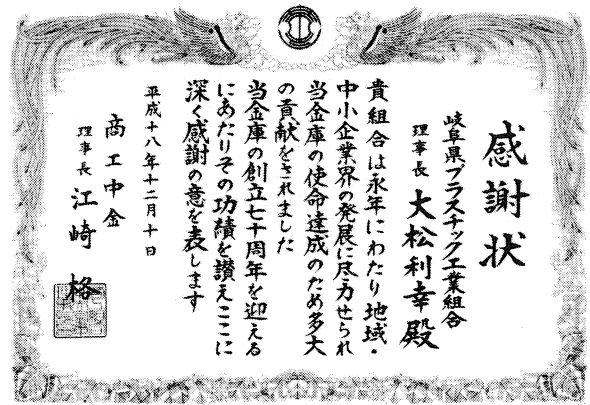 感謝状
岐阜県プラスチック工業組合
理事長 大松利幸殿
貴組合は永年にわたり地域・
中小企業界の発展に尽力せられ
当金庫の使命達成のため多大
の貢献をされました
当金庫の創立七十周年を迎える
にあたりその功績を讃えここに
深く感謝の意を表します
平成十八年十二月十日
商工中金
理事長 江崎 格